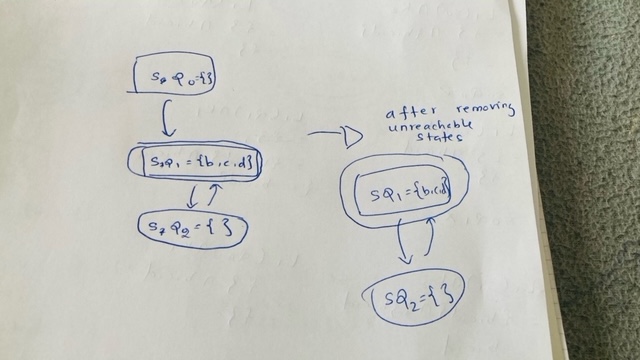 S₀Q₀={}
S₂Q₁={b,c,d}
S₇Q₂={ }
after removing
unreachable
states
SQ₁={b,c,d}
SQ₂={ }